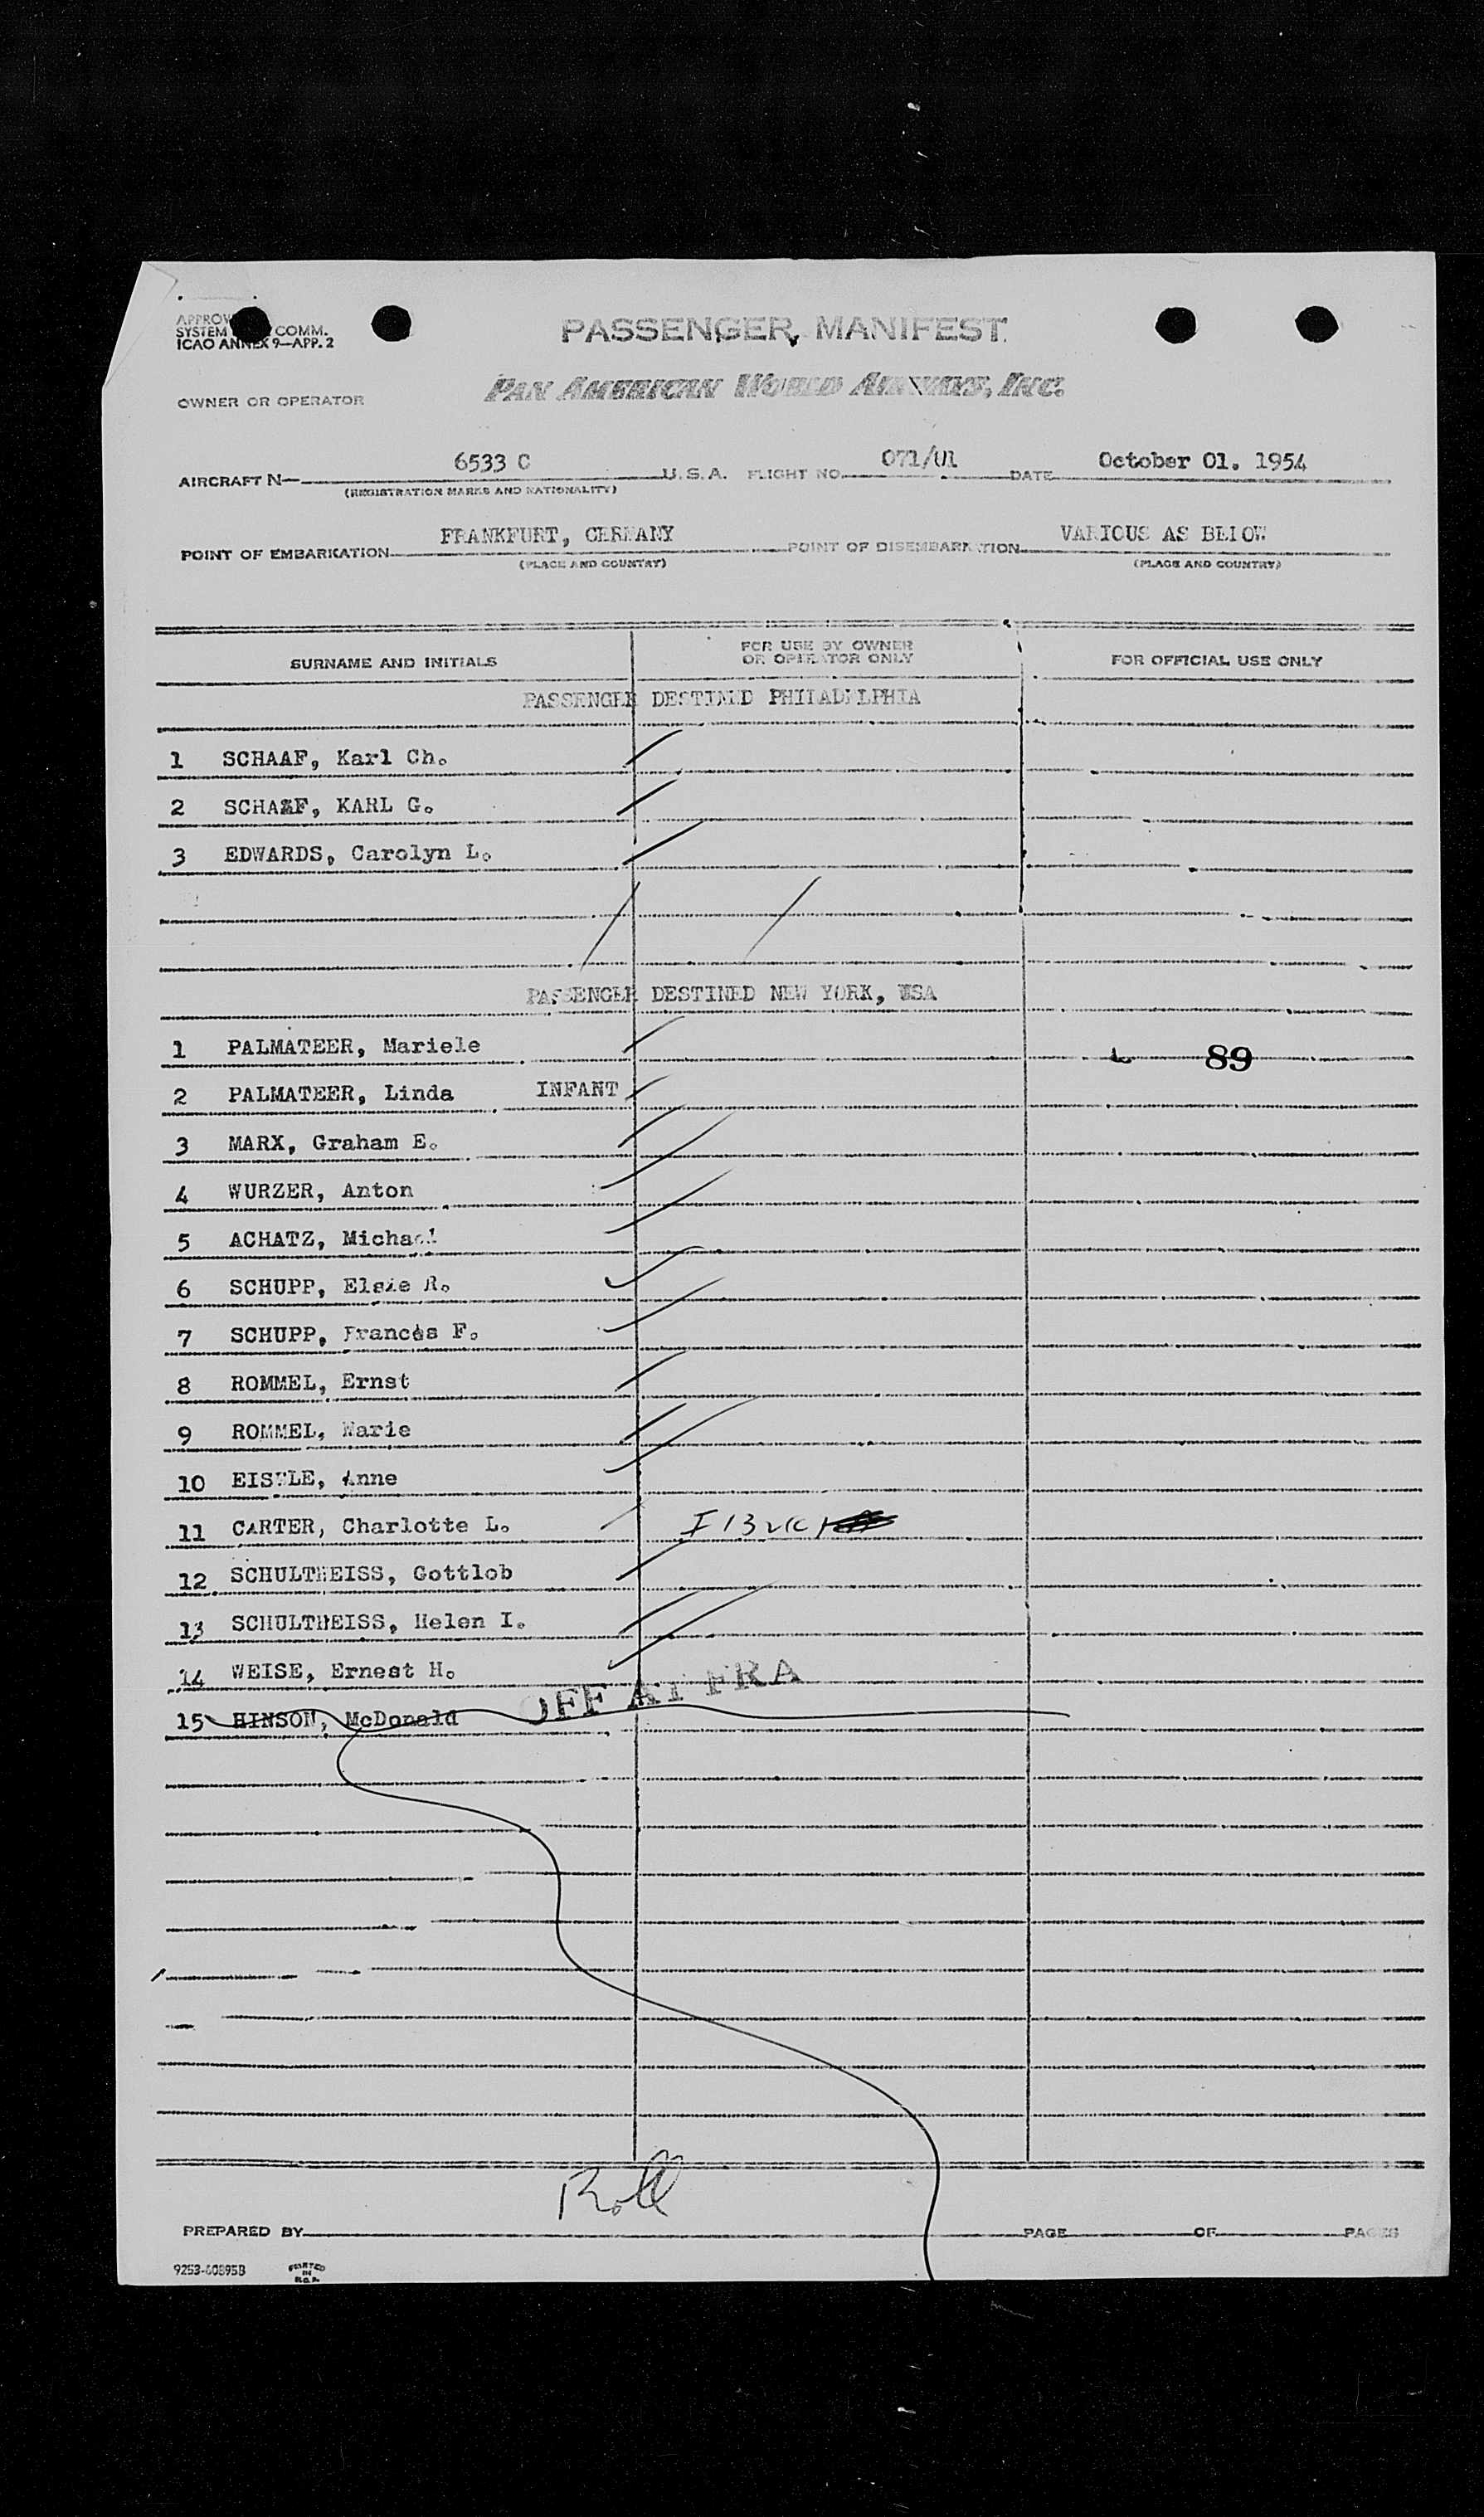 SYSTEM COMM.
ICAO ANNEX 9—APP. 2
PASSENGER MANIFEST
OWNER OR OPERATOR
PAN AMERICAN WORLD AIRWAYS, INC.
AIRCRAFT N— 6533 C U.S.A. FLIGHT NO. 071/01 DATE October 01. 1954
(REGISTRATION MARKS AND NATIONALITY)
POINT OF EMBARKATION FRANKFURT, GERMANY POINT OF DISEMBARKATION VARIOUS AS BELOW
(PLACE AND COUNTRY) (PLACE AND COUNTRY)
SURNAME AND INITIALS FOR USE BY OWNER OR OPERATOR ONLY FOR OFFICIAL USE ONLY
PASSENGER DESTINED PHILADELPHIA
1 SCHAAF, Karl Ch.
2 SCHAAF, KARL G.
3 EDWARDS, Carolyn L.
PASSENGER DESTINED NEW YORK, USA
1 PALMATEER, Mariele 89
2 PALMATEER, Linda INFANT
3 MARX, Graham E.
4 WURZER, Anton
5 ACHATZ, Michael
6 SCHUPP, Elsie R.
7 SCHUPP, Frances F.
8 ROMMEL, Ernst
9 ROMMEL, Marie
10 EISELE, Anne
11 CARTER, Charlotte L.
12 SCHULTHEISS, Gottlob
13 SCHULTHEISS, Helen I.
14 WEISE, Ernest H.
OFF AT FRA
15 HINSON, McDonald
PREPARED BY PAGE OF PAGES
9253-60895B PRINTED IN U.S.A.